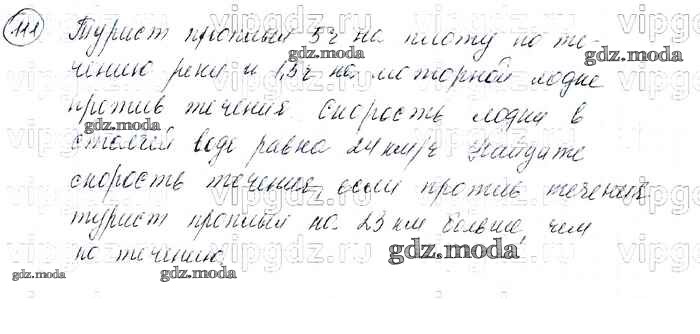 111 Турист проплыл 5 ч на плоту по те-
чению реки и 1,5 ч на моторной лодке
против течения. Скорость лодки в
стоячей воде равна 24 км/ч. Найдите
скорость течения, если против течения
турист проплыл на 23 км больше, чем
по течению.
gdz.moda
gdz.moda
gdz.moda
gdz.moda
gdz.moda
gdz.moda
vipgdz.ru